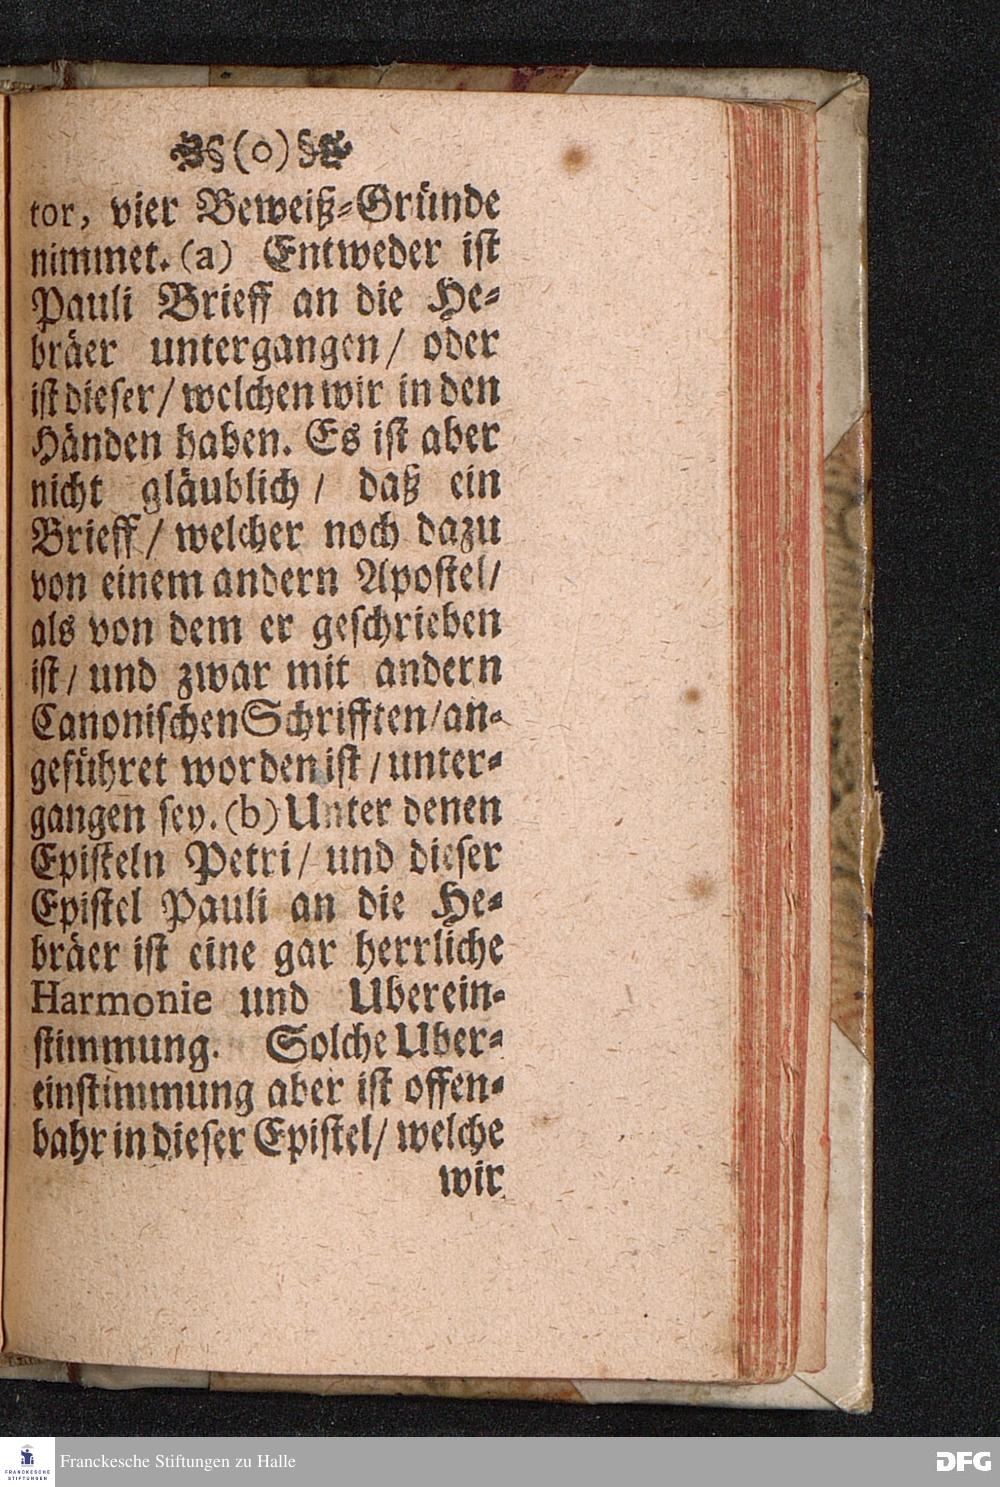 §(o)§
tor, vier Beweiß-Gründe
nimmet. (a) Entweder ist
Pauli Brieff an die He-
bräer untergangen/ oder
ist dieser/ welchen wir in den
Händen haben. Es ist aber
nicht gläublich/ daß ein
Brieff/ welcher noch dazu
von einem andern Apostel/
als von dem er geschrieben
ist/ und zwar mit andern
Canonischen Schrifften/ an-
geführet worden ist/ unter-
gangen sey. (b) Unter denen
Episteln Petri/ und dieser
Epistel Pauli an die He-
bräer ist eine gar herrliche
Harmonie und Uberein-
stimmung. Solche Uber-
einstimmung aber ist offen-
bahr in dieser Epistel/ welche
wir
FRANCKESCHE
STIFTUNGEN
Franckesche Stiftungen zu Halle
DFG